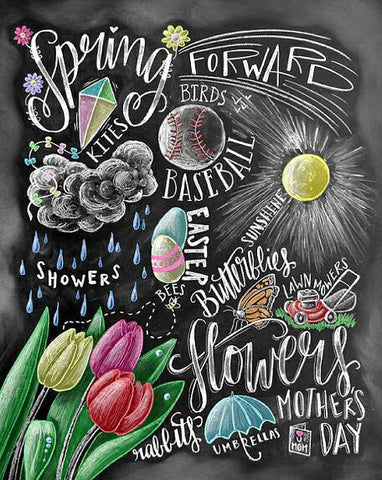 Spring
FORWARD
KITES
BIRDS
BASEBALL
SUNSHINE
EASTER
SHOWERS
BEES
Butterflies
LAWN MOWERS
flowers
MOTHER'S
DAY
rabbits
UMBRELLAS
MOM